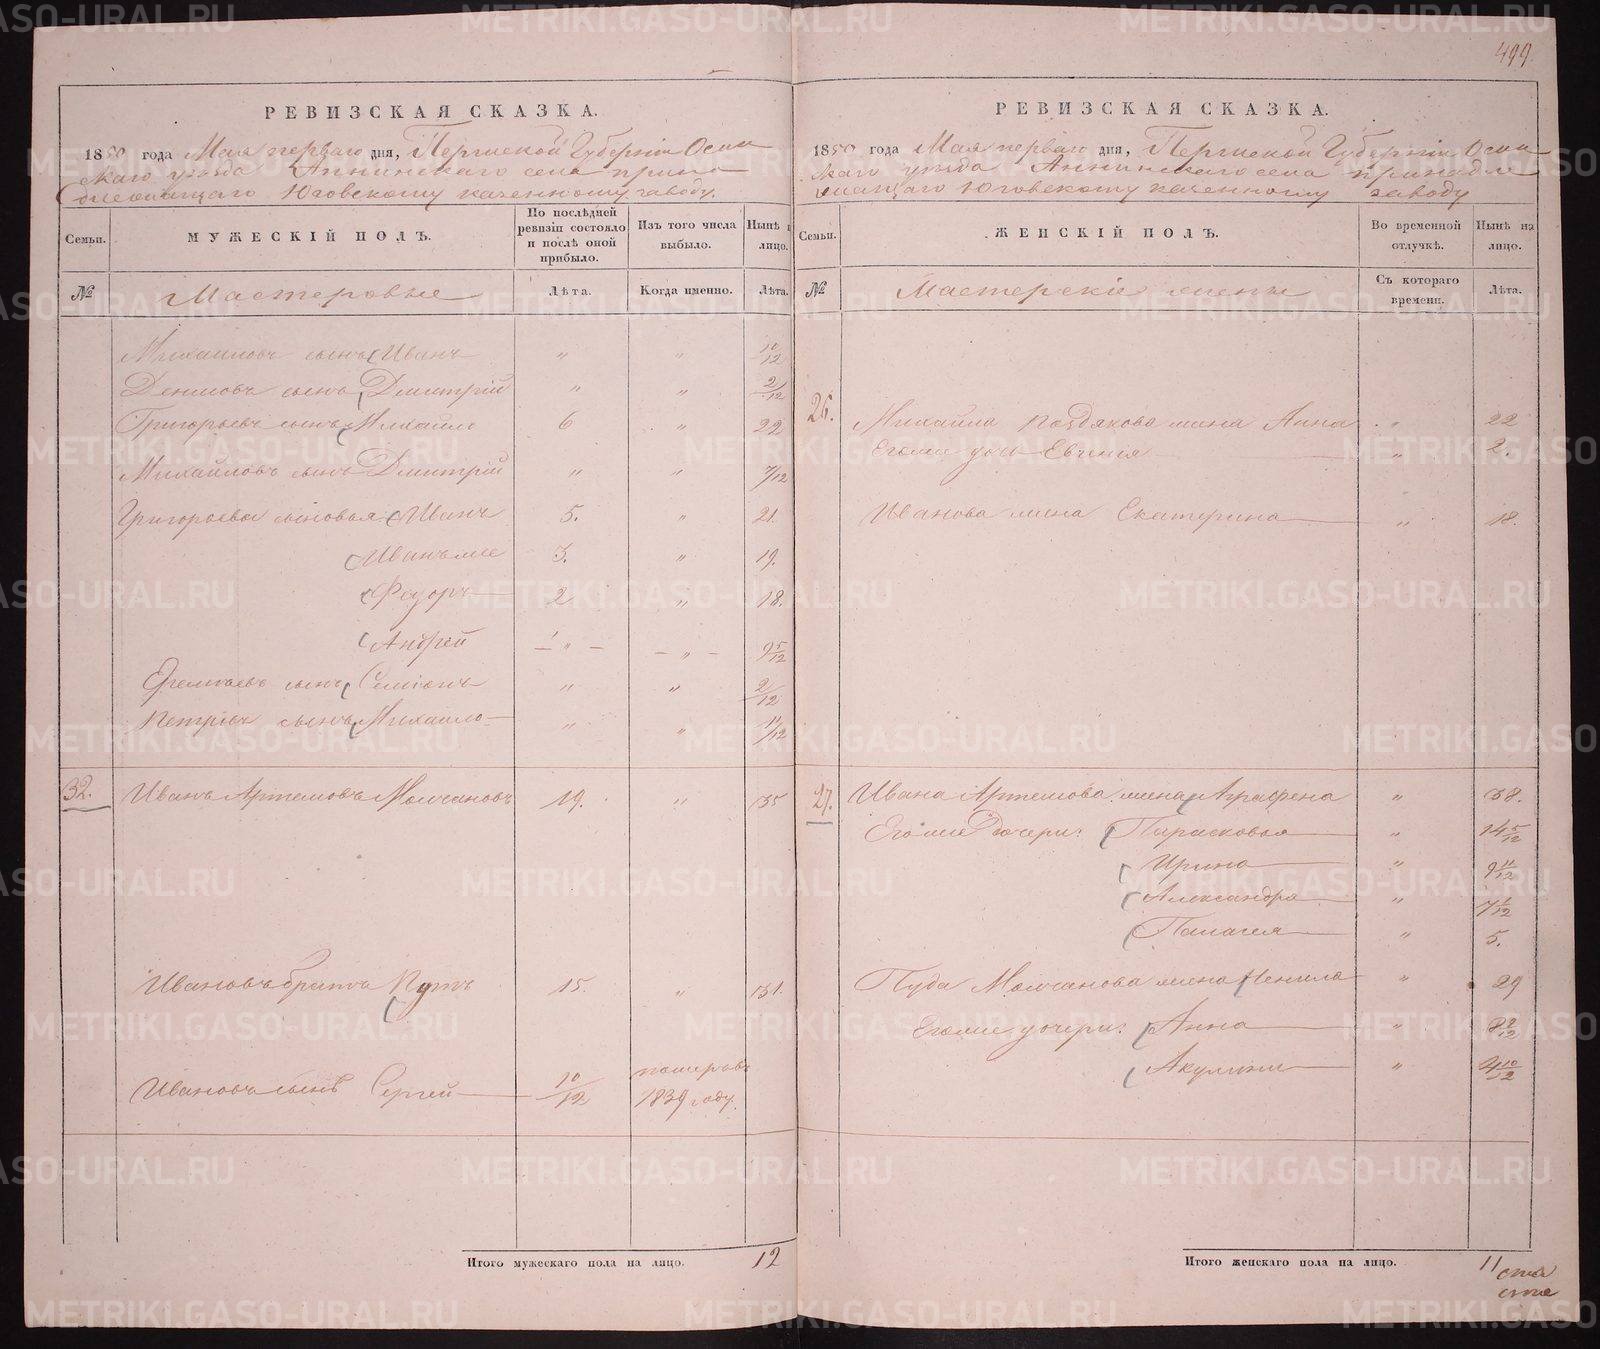 499.
РЕВИЗСКАЯ СКАЗКА.
1850 года Мая перваго дня, Пермской Губерніи Осин
скаго уезда Аннинскаго села прина
длежащаго Юговскому казенному заводу.
Семьи.
МУЖЕСКІЙ ПОЛЪ.
По послѣдней ревизіи состояло и послѣ оной прибыло.
Изъ того числа выбыло.
Нынѣ на лицо.
№
Мастеровые
Лѣта.
Когда именно.
Лѣта.
Михайловъ сынъ Иванъ " " 10/12
Денисовъ сынъ Дмитрій " " 2/12
Григорьевъ сынъ Михайло 6 " 22
Михайловъ сынъ Дмитрій " " 7/12
Григорьевы сыновья Иванъ 5. " 21.
Иванъ же 3. " 19.
Федоръ 2 " 18.
Андрей " " 9 5/12
сынъ Семіонъ " " 2/12
сынъ Михайло " " 11/12
32. Иванъ Артемовъ Молчановъ 19. " 35
Ивановъ братъ Пудъ 15. " 31.
Ивановъ сынъ Сергей 10/12 померъ въ
1839 году.
Итого мужескаго пола на лицо. 12
РЕВИЗСКАЯ СКАЗКА.
1850 года Мая перваго дня, Пермской Губерніи Осин
скаго уезда Аннинскаго села принадле
жащаго Юговскому казенному заводу
Семьи.
ЖЕНСКІЙ ПОЛЪ.
Во временной отлучкѣ.
Нынѣ на лицо.
№
Мастерскіе жены
Съ котораго времени.
Лѣта.
26. Михайла Поздякова жена Анна " 22
Егоже дочь Евгенія " 2.
Иванова жена Екатерина " 18.
27. Ивана Артемова жена Аграфена " 38.
Егоже Дочери: Парасковья " 14 5/12
Ирина " 9 11/12
Александра " 7 1/12
Палагея " 5.
Пуда Молчанова жена Ненила " 29
Егоже дочери: Анна " 8 2/12
Акулина " 4 10/12
Итого женскаго пола на лицо. 11